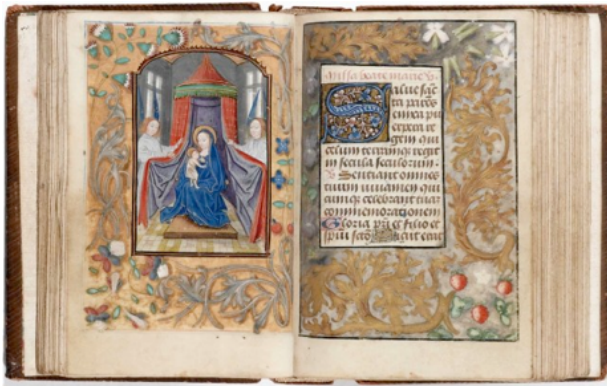 Missa beate marie v.
Salue sc̄a
ta parens
enixa pu
erpera re
gem qui
celum terramq̄ regit
in secula seculorum.
V Sentiant omnes
tuum iuuamen qui
cumq̄ celebrant tuam
commemorationem
Gloria pr̄i et filio et
sp̄ui sc̄to Sicut erat